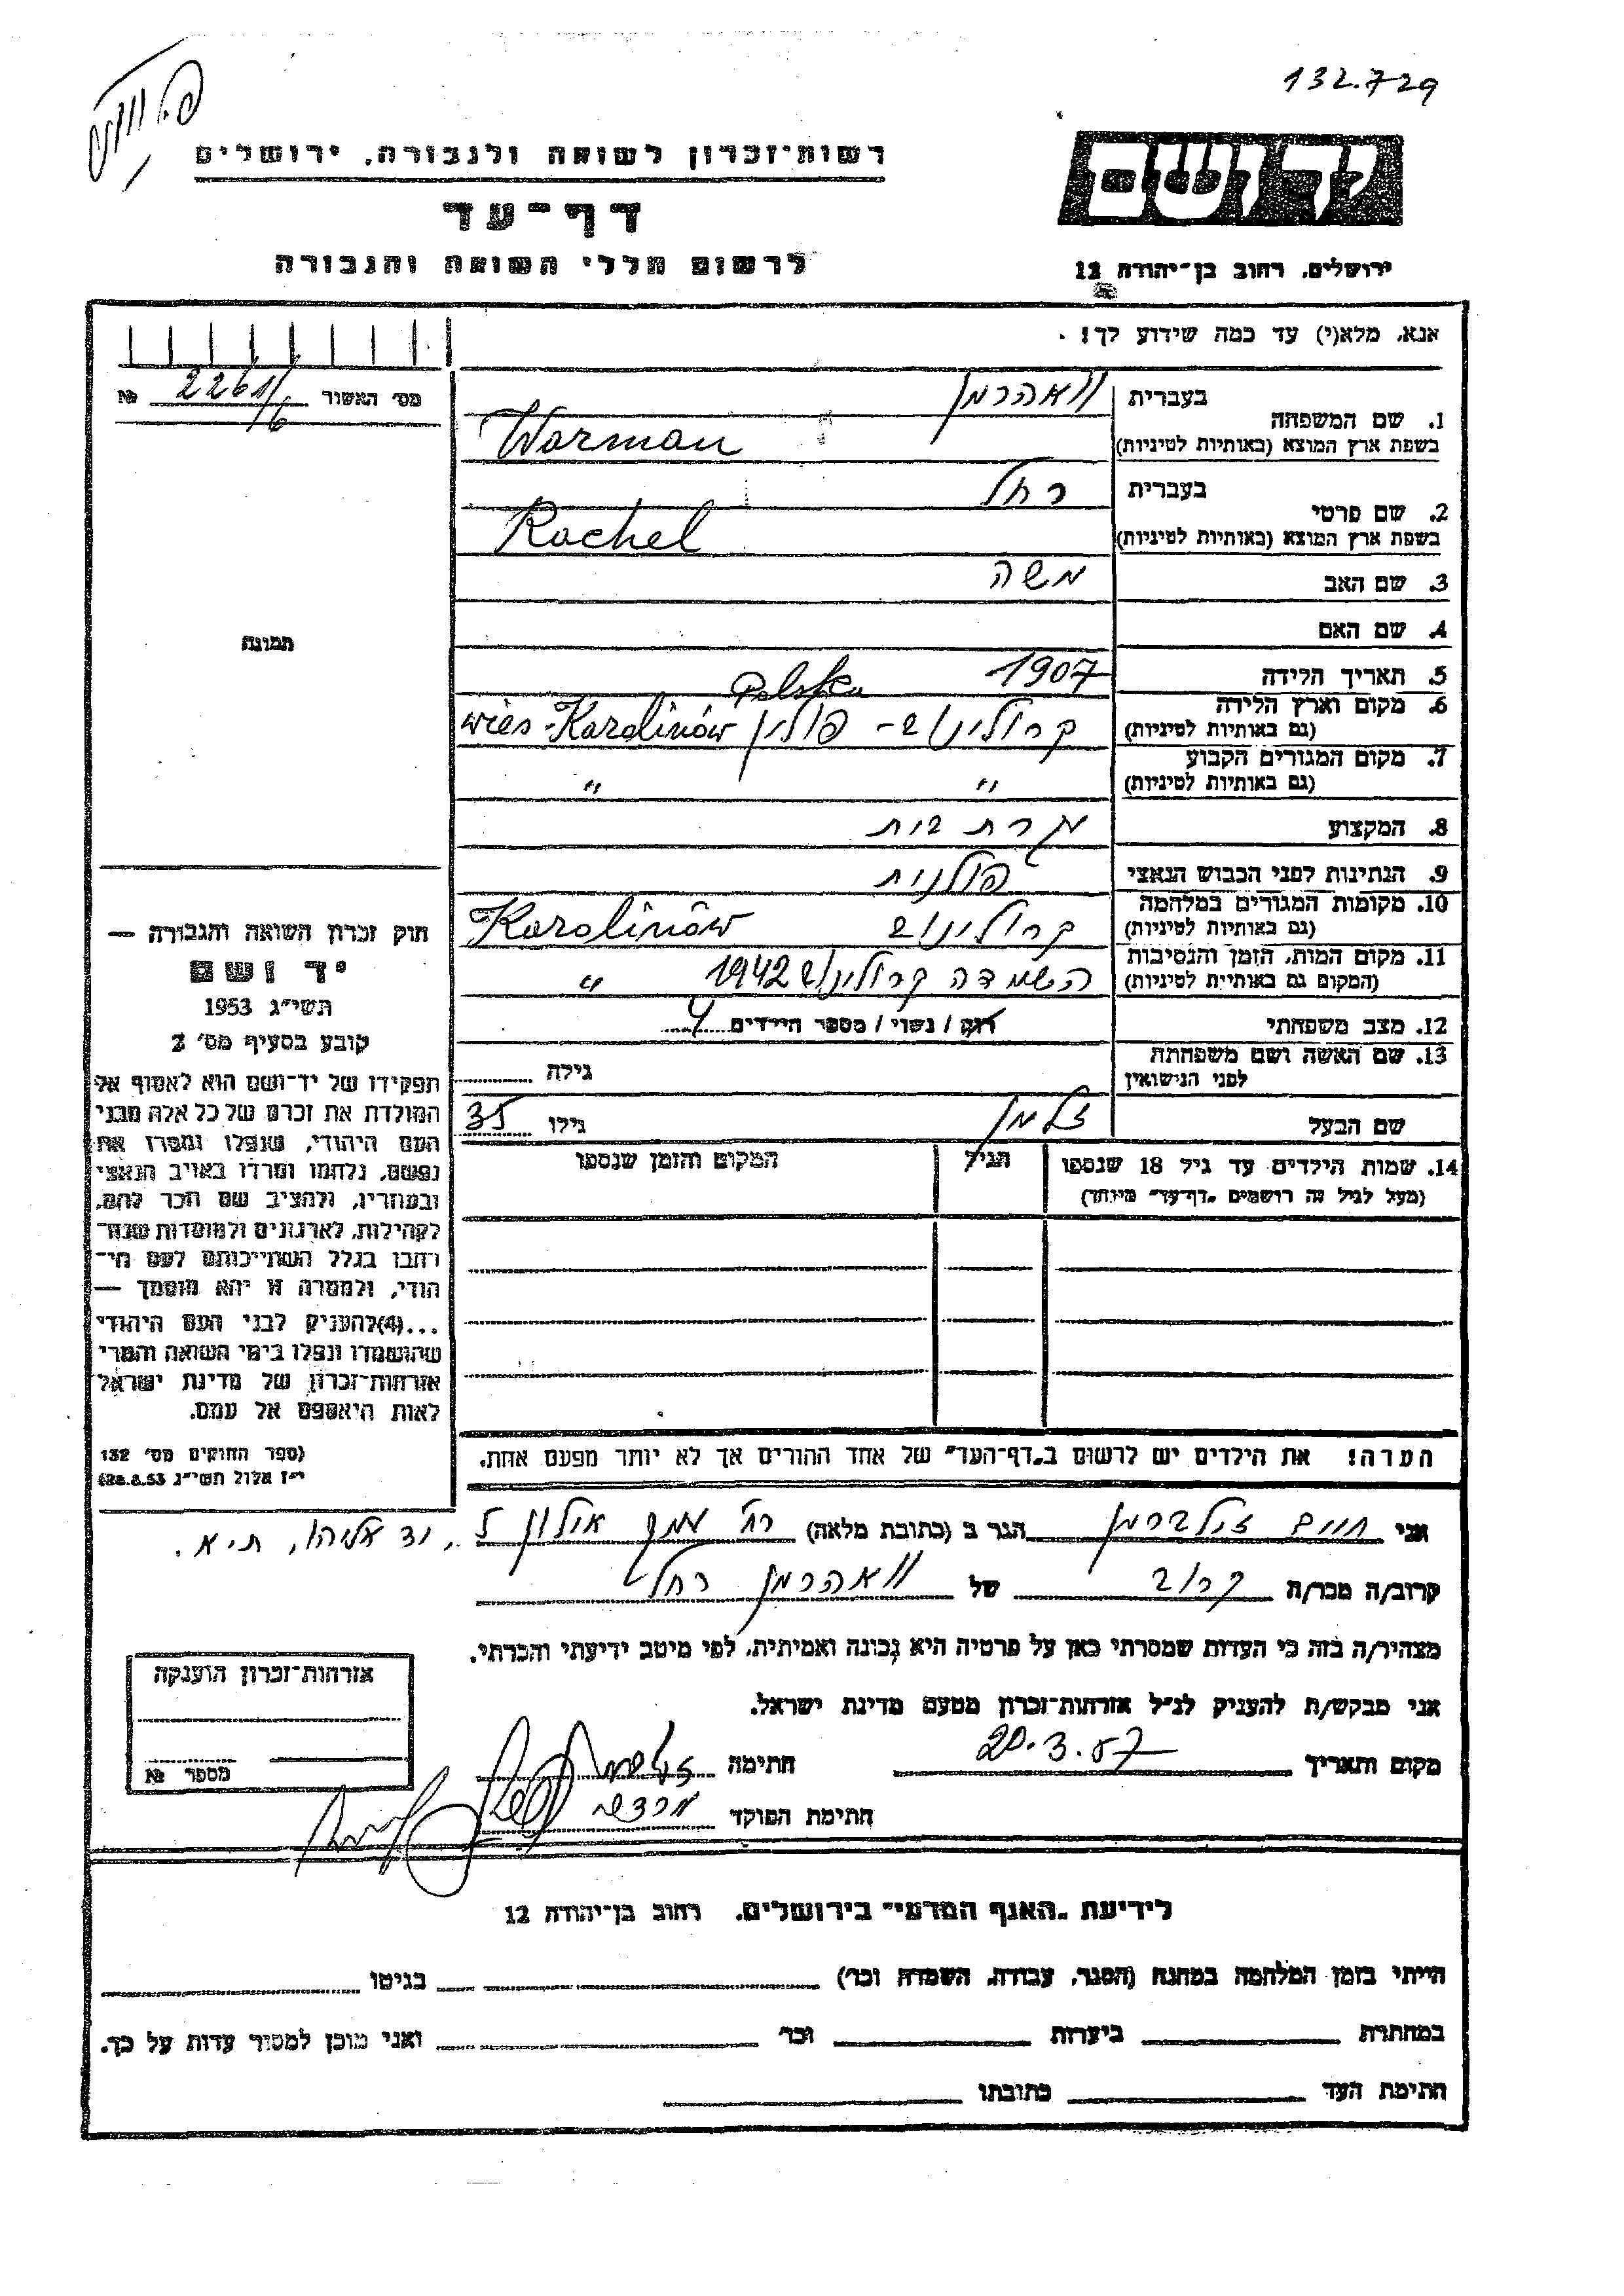 132.729
רשות-זכרון לשואה ולגבורה, ירושלים
דף-עד
לרשום חללי השואה והגבורה
יד ושם
ירושלים, רחוב בן-יהודה 12
אנא, מלא(י) עד כמה שידוע לך!
מס׳ האשור 2261/6 №
תמונה
חוק זכרון השואה והגבורה —
יד ושם
תשי״ג 1953
קובע בסעיף מס׳ 2
תפקידו של יד-ושם הוא לאסוף אל
המולדת את זכרם של כל אלה מבני
העם היהודי, שנפלו ומסרו את
נפשם, נלחמו ומרדו באויב הנאצי
ובעוזריו, ולהציב שם וזכר להם,
לקהילות, לארגונים ולמוסדות שנח-
רבו בגלל השתייכותם לעם הי-
הודי, ולמטרה זו יהא מוסמך —
...(4)להעניק לבני העם היהודי
שהושמדו ונפלו בימי השואה והמרי
אזרחות-זכרון של מדינת ישראל
לאות היאספם אל עמם.
(ספר החוקים מס׳ 132
י״ז אלול תשי״ג 28.8.53)
1. שם המשפחה
בעברית וואהרמן
בשפת ארץ המוצא (באותיות לטיניות) Worman
2. שם פרטי
בעברית רחל
בשפת ארץ המוצא (באותיות לטיניות) Rachel
3. שם האב משה
4. שם האם
5. תאריך הלידה 1907
6. מקום וארץ הלידה Polska
(גם באותיות לטיניות) קרולינוב - פולין wieś-Karolinów
7. מקום המגורים הקבוע
(גם באותיות לטיניות) ״ ״
8. המקצוע עקרת בית
9. הנתינות לפני הכבוש הנאצי פולנית
10. מקומות המגורים במלחמה
(גם באותיות לטיניות) קרולינוב Karolinów
11. מקום המות, הזמן והנסיבות
(המקום גם באותיית לטיניות) השמדה קרולינוב 1942 ״
12. מצב משפחתי רוק / נשוי / מספר הילדים 4
13. שם האשה ושם משפחתה
לפני הנישואין גילה
שם הבעל זלמן גילו 35
14. שמות הילדים עד גיל 18 שנספו הגיל המקום והזמן שנספו
(מעל לגיל זה רושמים „דף-עד״ מיוחד)
הערה! את הילדים יש לרשום ב„דף-העד״ של אחד ההורים אך לא יותר מפעם אחת.
אני חיים זילברמן הגר ב (כתובת מלאה) רח׳ אלון 5, יד אליהו, ת״א.
קרוב/ה מכר/ה קרוב של וואהרמן רחל
מצהיר/ה בזה כי העדות שמסרתי כאן על פרטיה היא נכונה ואמיתית, לפי מיטב ידיעתי והכרתי.
אני מבקש/ת להעניק לנ״ל אזרחות-זכרון מטעם מדינת ישראל.
מקום ותאריך 20.3.57 חתימה
חתימת הפוקד
אזרחות-זכרון הוענקה
מספר №
לידיעת „האגף המדעי״ בירושלים, רחוב בן-יהודה 12
הייתי בזמן המלחמה במחנה (הסגר, עבודה, השמדה וכו׳) בגיטו
במחתרת ביערות וכו׳ ואני מוכן למסור עדות על כך.
חתימת העד כתובתו